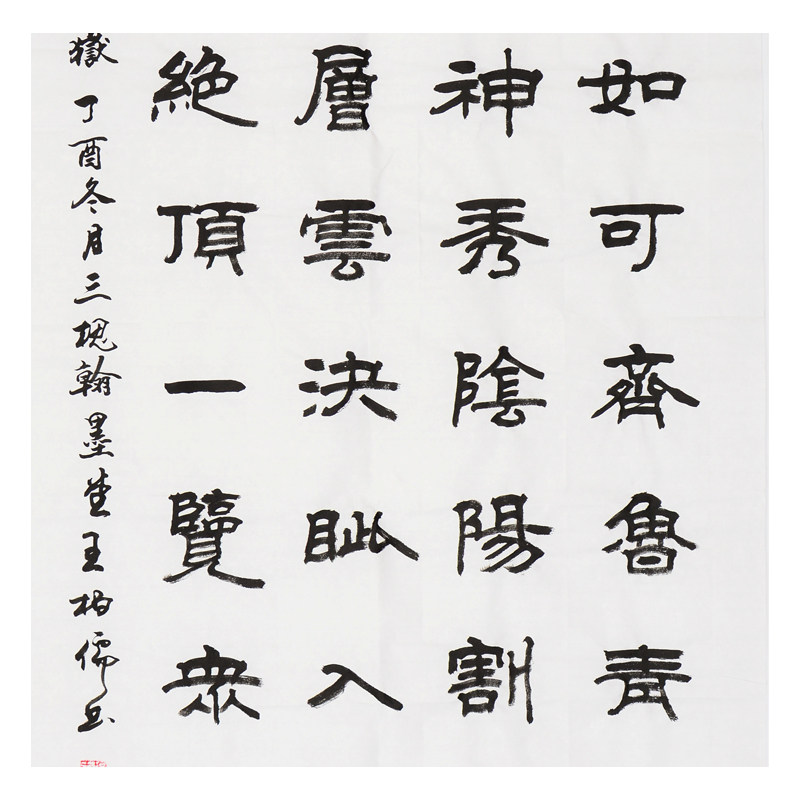 如可齊魯青
神秀陰陽割
層雲決眦入
絶頂一覽衆
嶽 丁酉冬月三槐翰墨堂王柏儒書